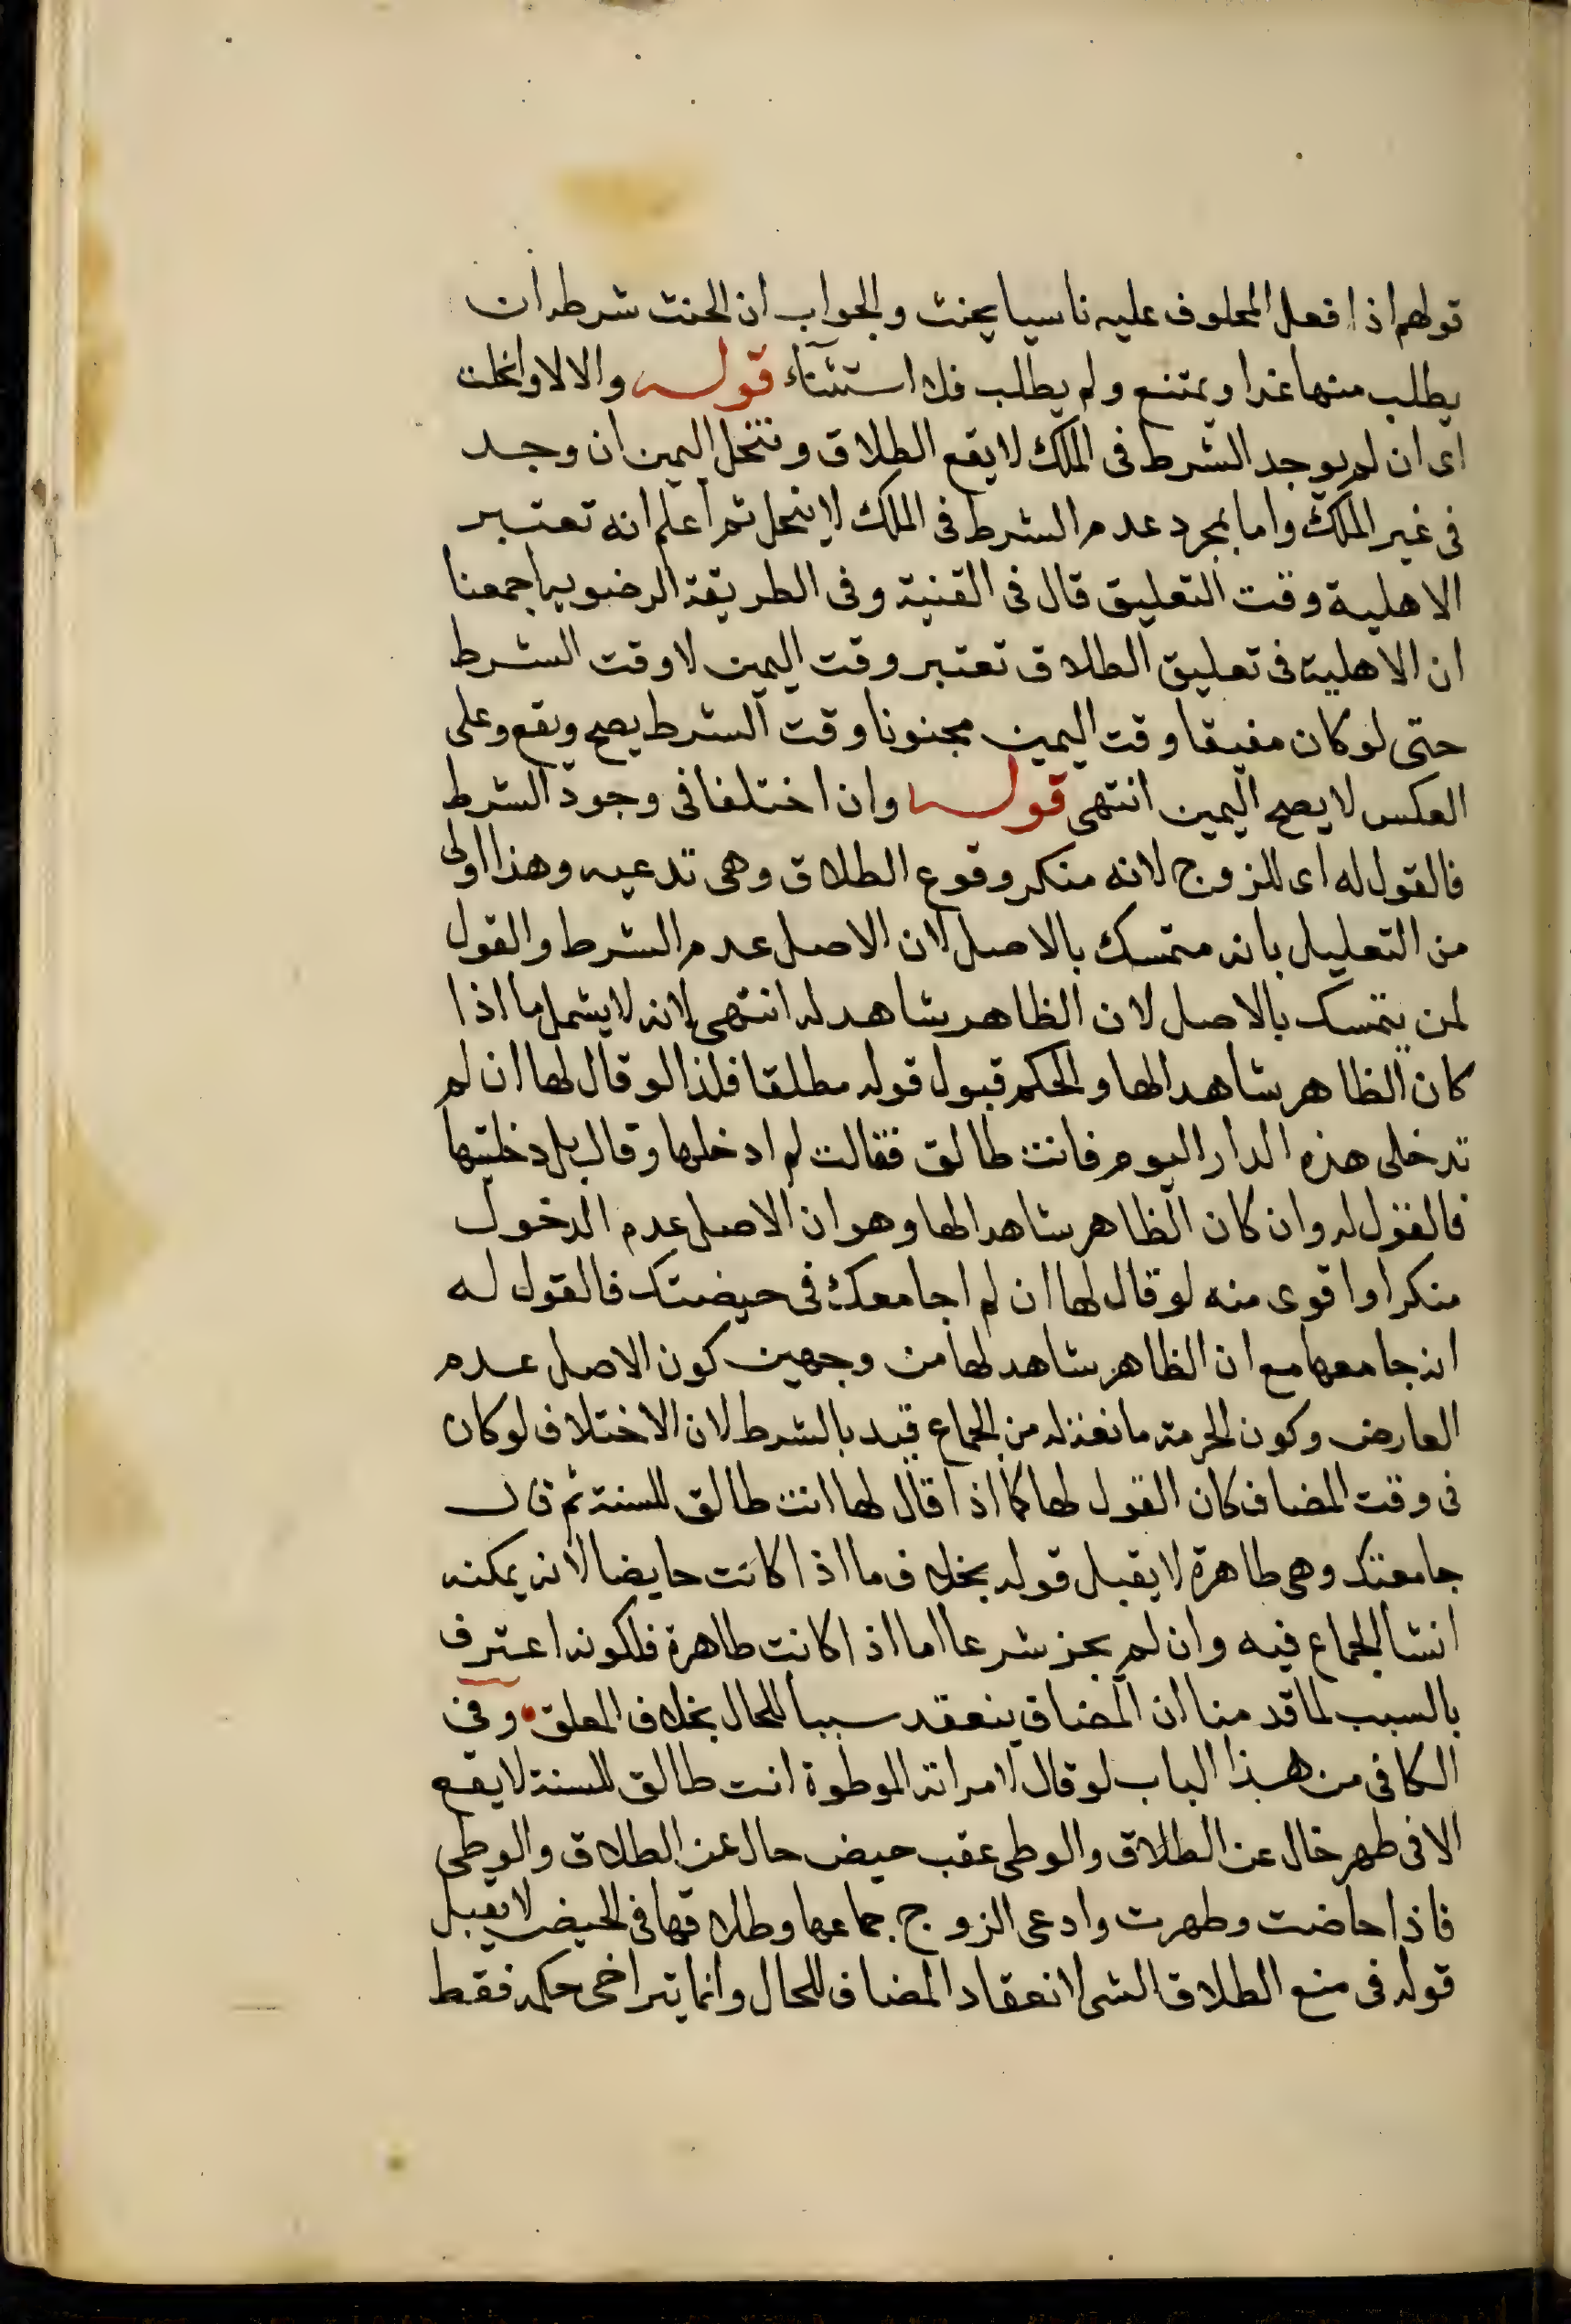 قولهم اذا فعل المحلوف عليه ناسيا يحنث والجواب ان الحنث شرطه ان
يطلب منها غدا ويمتنع ولم يطلب فلا استثناء قوله والا لا وانحلت
اى ان لم يوجد الشرط فى الملك لا يقع الطلاق وتنحل اليمين ان وجد
فى غير الملك واما بمجرد عدم الشرط فى الملك لا ينحل ثم اعلم انه تعتبر
الاهلية وقت التعليق قال فى القنية وفى الطريقة الرضوية اجمعنا
ان الاهلية فى تعليق الطلاق تعتبر وقت اليمين لا وقت الشرط
حتى لو كان مفيقا وقت اليمين مجنونا وقت الشرط يصح ويقع وعلى
العكس لا يصح اليمين انتهى قوله وان اختلفا فى وجود الشرط
فالقول له اى للزوج لانه منكر وقوع الطلاق وهى تدعيه وهذا اولى
من التعليل بانه متمسك بالاصل لان الاصل عدم الشرط والقول
لمن يتمسك بالاصل لان الظاهر شاهد له انتهى لانه لا يشمل ما اذا
كان الظاهر شاهدا لها والحكم قبول قوله مطلقا فلذا لو قال لها ان لم
تدخلى هذه الدار اليوم فانت طالق فقالت لم ادخلها وقال بل دخلتها
فالقول له وان كان الظاهر شاهدا لها وهو ان الاصل عدم الدخول
منكرا واقوى منه لو قال لها ان لم اجامعك فى حيضتك فالقول له
انه جامعها مع ان الظاهر شاهد لها من وجهين كون الاصل عدم
العارض وكون الحرمة مانعة له من الجماع قيد بالشرط لان الاختلاف لو كان
فى وقت المضاف كان القول لها كما اذا قال لها انت طالق للسنة ثم قال
جامعتك وهى طاهرة لا يقبل قوله بخلاف ما اذا كانت حايضا لانه يمكنه
انشا الجماع فيه وان لم يجز شرعا اما اذا كانت طاهرة فلكونه اعترف
بالسبب لما قدمنا ان المضاف ينعقد سببا للحال بخلاف المعلق • وفى
الكافى من هذا الباب لو قال لامراته الموطوة انت طالق للسنة لا يقع
الا فى طهر خال عن الطلاق والوطى عقب حيض خال عن الطلاق والوطى
فاذا حاضت وطهرت وادعى الزوج جماعها وطلاقها فى الحيض لا يقبل
قوله فى منع الطلاق السنى لانعقاد المضاف للحال وانما يتراخى حكمه فقط